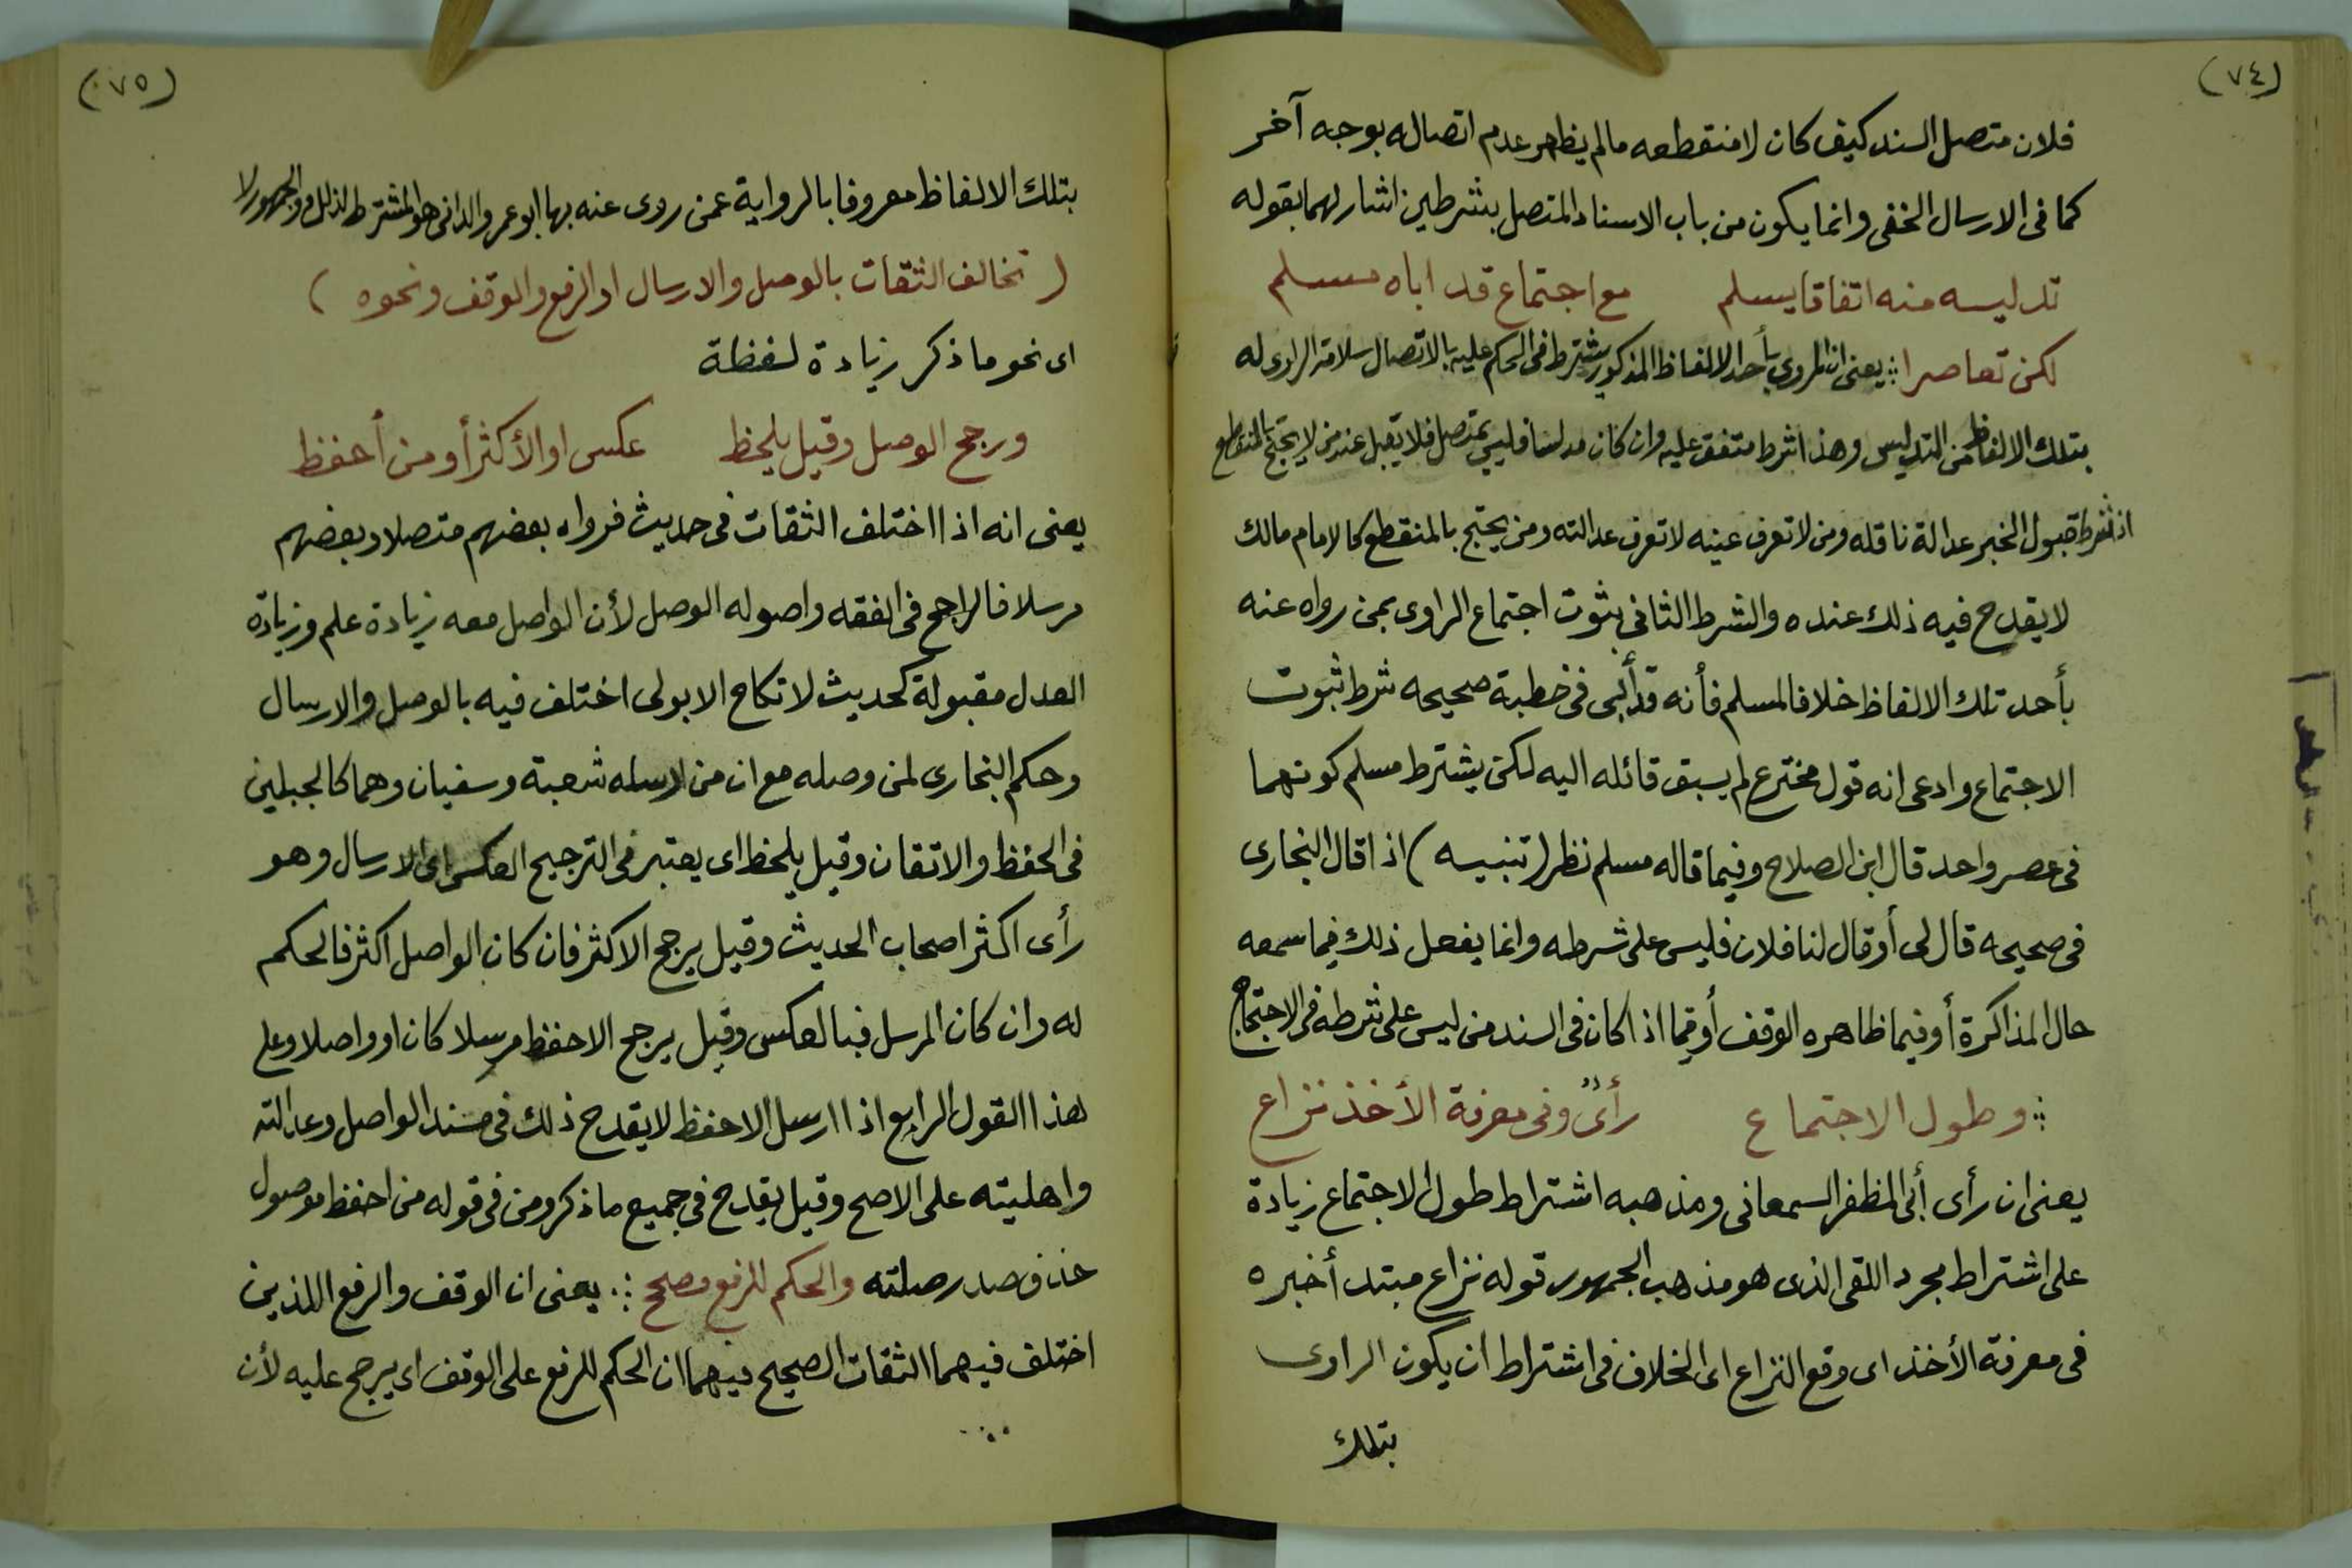 (٧٤)
فلان متصل السند كيف كان لا منقطعه مالم يظهر عدم اتصاله بوجه آخر
كما فى الارسال الخفى وانما يكون من باب الاسناد المتصل بشرطين اشار لهما بقوله
تدليسه منه اتفاقا يسلم مع اجتماع قد اباه مسلم
لكن تعاصرا ⁘ يعنى ان المروى بأحد الالفاظ المذكور يشترط فى الحكم عليه بالاتصال سلامة الراوى له
بتلك الالفاظ من التدليس وهذا شرط متفق عليه وان كان مدلسا فليس بمتصل فلا يقبل عند من لا يحتج بالمنقطع
اذ شرط قبول الخبر عدالة ناقله ومن لا تعرف عينه لا تعرف عدالته ومن يحتج بالمنقطع كالامام مالك
لا يقدح فيه ذلك عنده والشرط الثانى بثوت اجتماع الراوى بمن رواه عنه
بأحد تلك الالفاظ خلافا لمسلم فأنه قد أبى فى خطبة صحيحه شرط ثبوت
الاجتماع وادعى انه قول مخترع لم يسبق قائله اليه لكن يشترط مسلم كونهما
فى عصر واحد قال ابن الصلاح وفيما قاله مسلم نظر (تنبيه) اذا قال البخارى
فى صحيحه قال لى أو قال لنا فلان فليس على شرطه وانما يفعل ذلك فيما سمعه
حال المذاكرة أو فيما ظاهره الوقف أو فيما اذا كان فى السند من ليس على شرطه فى الاحتجاج
⁘ وطول الاجتماع رأىٌ وفى معرفة الأخذ نزاع
يعنى ان رأى أبى المظفر السمعانى ومذهبه اشتراط طول الاجتماع زيادة
على اشتراط مجرد اللقى الذى هو مذهب الجمهور قوله نزاع مبتدأ خبره
فى معرفة الأخذ اى وقع النزاع اى الخلاف فى اشتراط ان يكون الراوى
بتلك
(٧٥)
بتلك الالفاظ معروفا بالرواية عمن روى عنه بها ابو عمرو الدانى هو المشترط لذلك والجمهور لا
(تخالف الثقات بالوصل والارسال او الرفع والوقف ونحوه)
اى نحو ما ذكر زيادة لفظة
ورجح الوصل وقيل يلحظ عكس او الأكثر أو من أحفظ
يعنى انه اذا اختلف الثقات فى حديث فرواه بعضهم متصلا وبعضهم
مرسلا فالراجح فى الفقه واصوله الوصل لأن الواصل معه زيادة علم وزيادة
العدل مقبولة كحديث لا نكاح الا بولى اختلف فيه بالوصل والارسال
وحكم البخارى لمن وصله مع ان من ارسله شعبة وسفيان وهما كالجبلين
فى الحفظ والاتقان وقيل يلحظ اى يعتبر فى الترجيح العكس اى الارسال وهو
رأى اكثر اصحاب الحديث وقيل يرجح الاكثر فان كان الواصل اكثر فالحكم
له وان كان المرسل فبالعكس وقيل يرجح الاحفظ مرسلا كان او واصلا وعلى
هذا القول الرابع اذا ارسل الاحفظ لا يقدح ذلك فى مسند الواصل وعدالته
واهليته على الاصح وقيل يقدح فى جميع ما ذكر ومن فى قوله من احفظ موصول
حذف صدر صلته والحكم للرفع مصحح ⁘ يعنى ان الوقف والرفع اللذين
اختلف فيهما الثقات الصحيح فيهما ان الحكم للرفع على الوقف اى يرجح عليه لأن